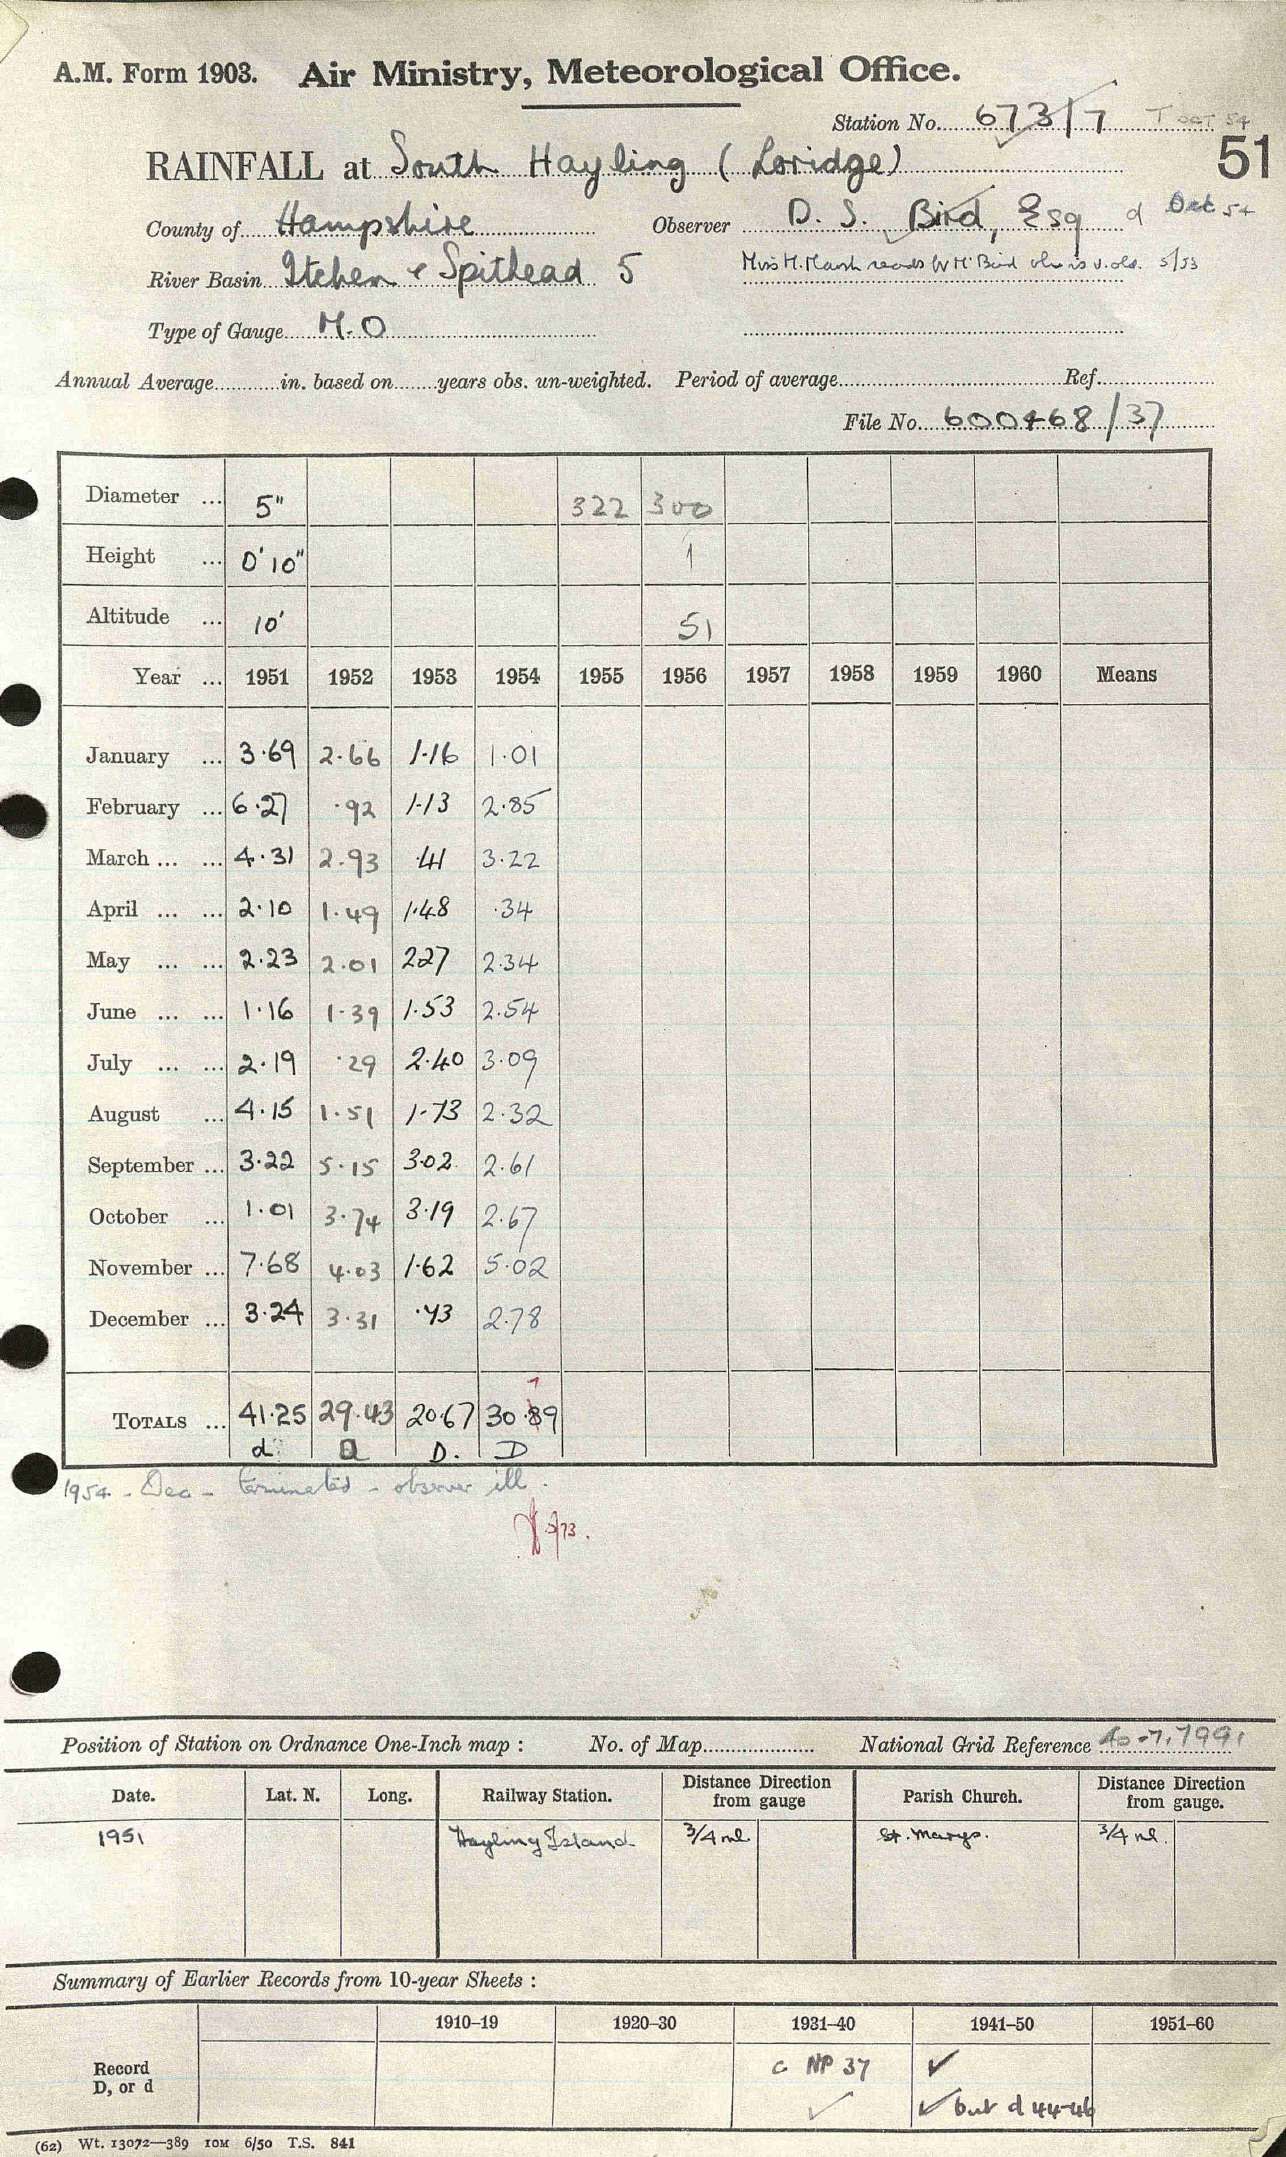 A.M. Form 1903. Air Ministry, Meteorological Office.
Station No. 673/7 T OCT 54
51
RAINFALL at South Hayling (Loridge)
County of Hampshire Observer D. S. Bird, Esq d Oct 54
River Basin Itchen & Spithead 5 Miss M. Marsh reads for Mr Bird who is v. old. 5/53
Type of Gauge M.O
Annual Average in. based on years obs. un-weighted. Period of average Ref.
File No. 600468/37
Diameter ... 5" 322 300
Height ... 0' 10" 1
Altitude ... 10' 51
Year ... 1951 1952 1953 1954 1955 1956 1957 1958 1959 1960 Means
January ... 3.69 2.66 1.16 1.01
February ... 6.27 .92 1.13 2.85
March ... ... 4.31 2.93 .41 3.22
April ... ... 2.10 1.49 1.48 .34
May ... ... 2.23 2.01 2.27 2.34
June ... ... 1.16 1.39 1.53 2.54
July ... ... 2.19 .29 2.40 3.09
August ... 4.15 1.51 1.73 2.32
September ... 3.22 5.15 3.02 2.61
October ... 1.01 3.74 3.19 2.67
November ... 7.68 4.03 1.62 5.02
December ... 3.24 3.31 .73 2.78
7
TOTALS ... 41.25 29.43 20.67 30.89
d D. D
1954 - Dec - terminated - observer ill.
Position of Station on Ordnance One-Inch map : No. of Map National Grid Reference 40-7.7991
Date. Lat. N. Long. Railway Station. Distance Direction from gauge Parish Church. Distance Direction from gauge.
1951 Hayling Island 3/4 ml. St. Marys. 3/4 ml.
Summary of Earlier Records from 10-year Sheets :
1910–19 1920–30 1931–40 1941–50 1951–60
Record D, or d C NP 37 ✓
✓ ✓ but d 44-46
(62) Wt. 13072—389 10M 6/50 T.S. 841